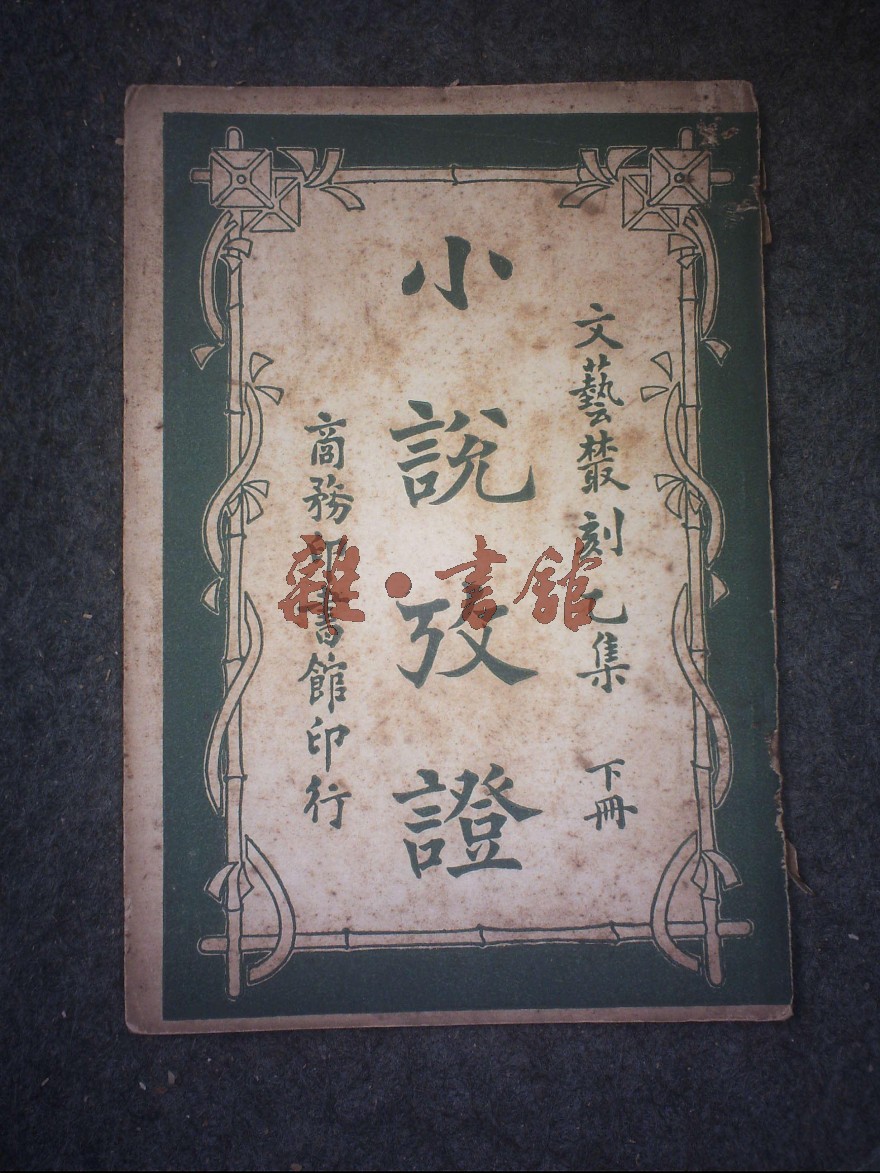 文藝叢刻乙集 下冊
小說攷證
商務印書館印行
雜·書館